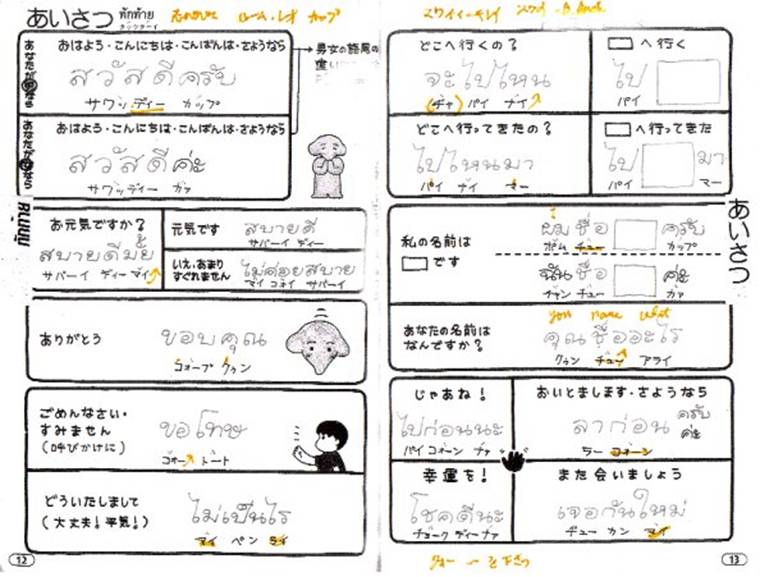 あいさつ ทักทาย
タックターイ
あなたが男なら
おはよう・こんにちは・こんばんは・さようなら
สวัสดีครับ
サワッディー カップ
男女の語尾の
あなたが女なら
おはよう・こんにちは・こんばんは・さようなら
สวัสดีค่ะ
サワッディー カァ
お元気ですか?
สบายดีมั้ย
サバーイ ディーマイ
元気です
สบายดี
サバーイ ディー
いえ、あまりすぐれません
ไม่ค่อยสบาย
マイ コォイ サバーイ
ありがとう
ขอบคุณ
コォープ クゥン
ごめんなさい・
すみません
(呼びかけに)
ขอโทษ
コォー トート
どういたしまして
(大丈夫!平気!)
ไม่เป็นไร
マイ ペン ライ
12
どこへ行くの?
จะไปไหน
(チャ) パイ ナイ
へ行く
ไป
パイ
どこへ行ってきたの?
ไปไหนมา
パイ ナイ マー
へ行ってきた
ไป มา
パイ マー
あいさつ
私の名前は
です
ผม ชื่อ ครับ
ポム チュー カップ
ฉัน ชื่อ ค่ะ
チャン チュー カァ
you name what
あなたの名前は
なんですか?
คุณชื่ออะไร
クゥン チュー アライ
じゃあね!
ไปก่อนนะ
パイ コォーン ナァ
おいとまします・さようなら
ลาก่อน ครับ
ค่ะ
ラー コォーン
幸運を!
โชคดีนะ
チョーク ディーナァ
また会いましょう
เจอกันใหม่
チュー カン マイ
13